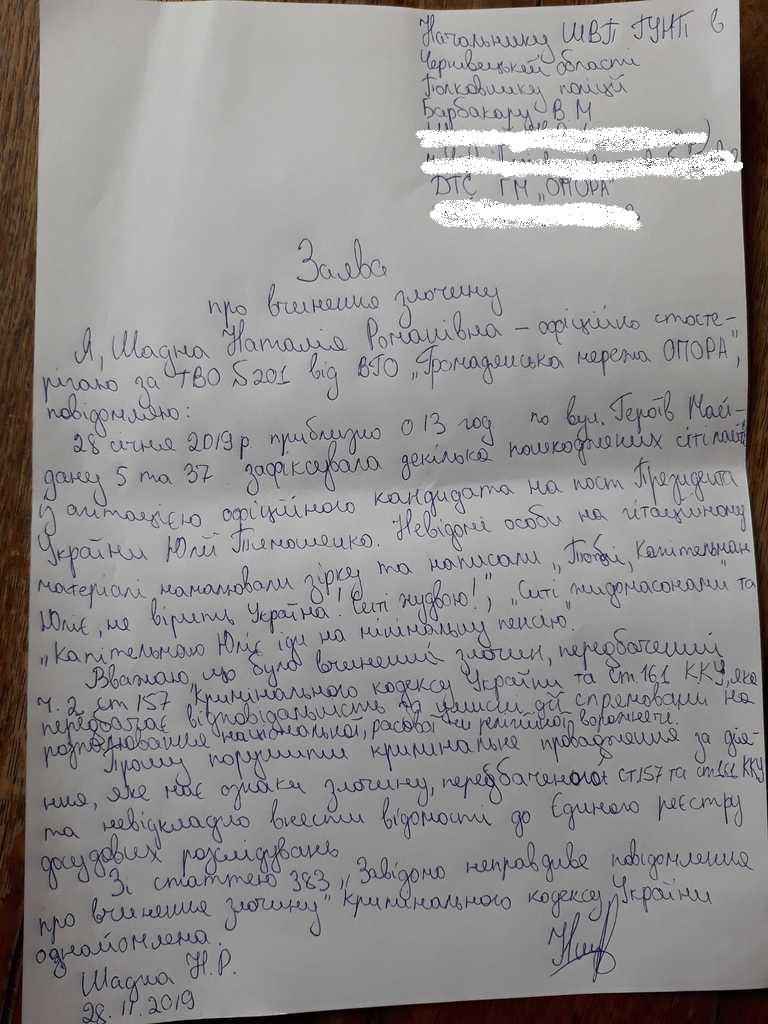 Начальнику ШВП ГУНП в
Чернівецькій області
Полковнику поліції
Барбакару В М
ДТС ГМ „ОПОРА"
Заява
про вчинення злочину
Я, Шадна Наталія Романівна – офіційно спосте-
рігаю за ТВО №201 від ВГО „Громадянська мережа ОПОРА",
повідомляю:
28 січня 2019 р приблизно о 13 год по вул. Героїв Май-
дану 5 та 37 зафіксувала декілька пошкоджених сітілайтів
з агітацією офіційного кандидата на пост Президента
України Юлії Тимошенко. Невідомі особи на агітаційному
матеріалі намалювали зірку та написали „Капітельман
Юліє, не вірить Україна! Ситі жидвою!", „Ситі жидомасонами" та
„Капітельман Юліє іди на мінімальну пенсію."
Вважаю, що було вчинений злочин, передбачений
ч. 2 ст 157 Кримінального кодексу України та ст 161 ККУ, яка
передбачає відповідальність за умисні дії спрямовані на
розпалювання національної, расової чи релігійної ворожнечі.
Прошу порушити кримінальне провадження за дія-
ння, яке має ознаки злочину, передбаченого ст 157 та ст 161 ККУ
та невідкладно внести відомості до Єдиного реєстру
досудових розслідувань
Зі статтею 383 „Завідомо неправдиве повідомлення
про вчинення злочину" Кримінального кодексу України
ознайомлена.
Шадна Н.Р.
28.11.2019